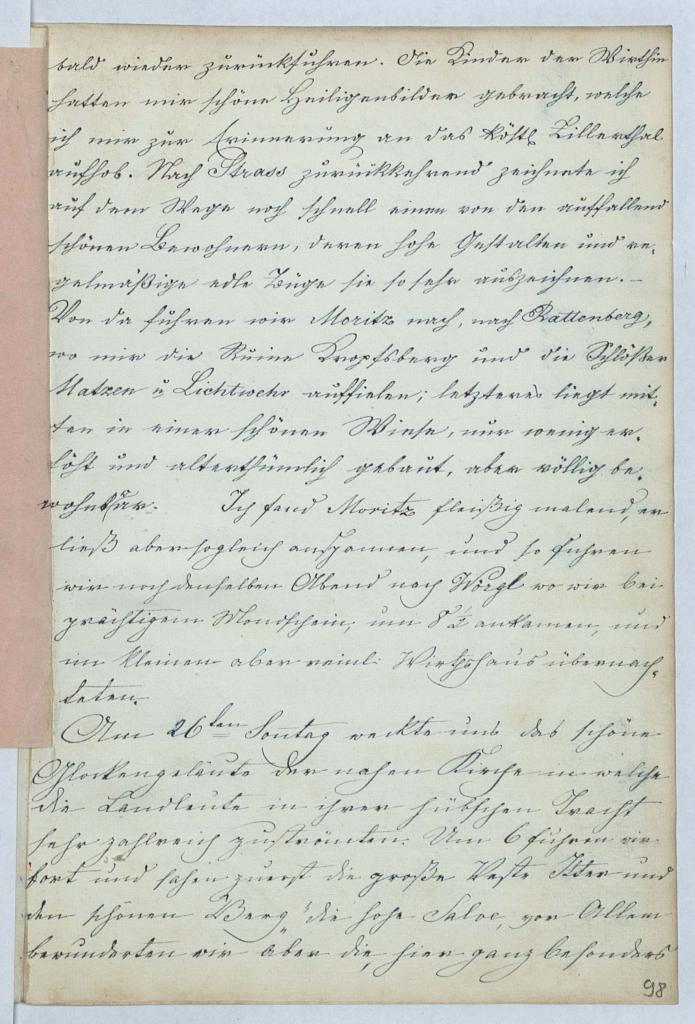 bald wieder zurückfuhren. Die Kinder der Wirthin
hatten mir schöne Heiligenbilder gebracht, welche
ich mir zur Erinnerung an das köstl. Zillerthal
aufhob. Nach Strass zurückkehrend zeichnete ich
auf dem Wege noch schnell einen von den auffallend
schönen Bewohnern, deren hohe Gestalten und re-
gelmäßige edle Züge sie so sehr auszeichnen. –
Von da fuhren wir Moritz nach, nach Rattenberg,
wo mir die Ruine Kropfsberg und die Schlößer
Matzen u Lichtwehr auffielen; letzteres liegt mit-
ten in einer schönen Wiese, nur wenig er-
höht und alterthümlich gebaut, aber völlig be-
wohnbar. Ich fand Moritz fleißig malend, er
ließ aber sogleich anspannen, und so fuhren
wir noch denselben Abend nach Wörgl wo wir bei
prächtigem Mondschein, um 8 ½ ankamen, und
im kleinen aber reinl: Wirthshaus übernach-
teten.
Am 26ten Sontag weckte uns das schöne
Glockengeläute der nahen Kirche in welche
die Landleute in ihrer hübschen Tracht
sehr zahlreich zuströmten. Um 6 fuhren wir
fort und sahen zuerst die große Veste Itter und
den schönen Berg "die hohe Salve, vor Allem
bewunderten wir aber die, hier ganz besonders
98